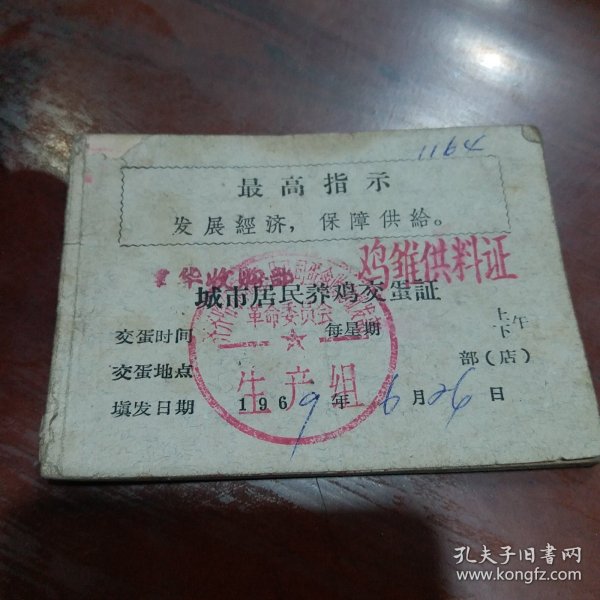 1164
最高指示
发展經济，保障供給。
鸡雏供料证
城市居民养鸡交蛋証
革命委员会
交蛋时间 每星期 上下午
交蛋地点 部(店)
生产组
填发日期 1969年6月26日
孔夫子旧书网
www.kongfz.com